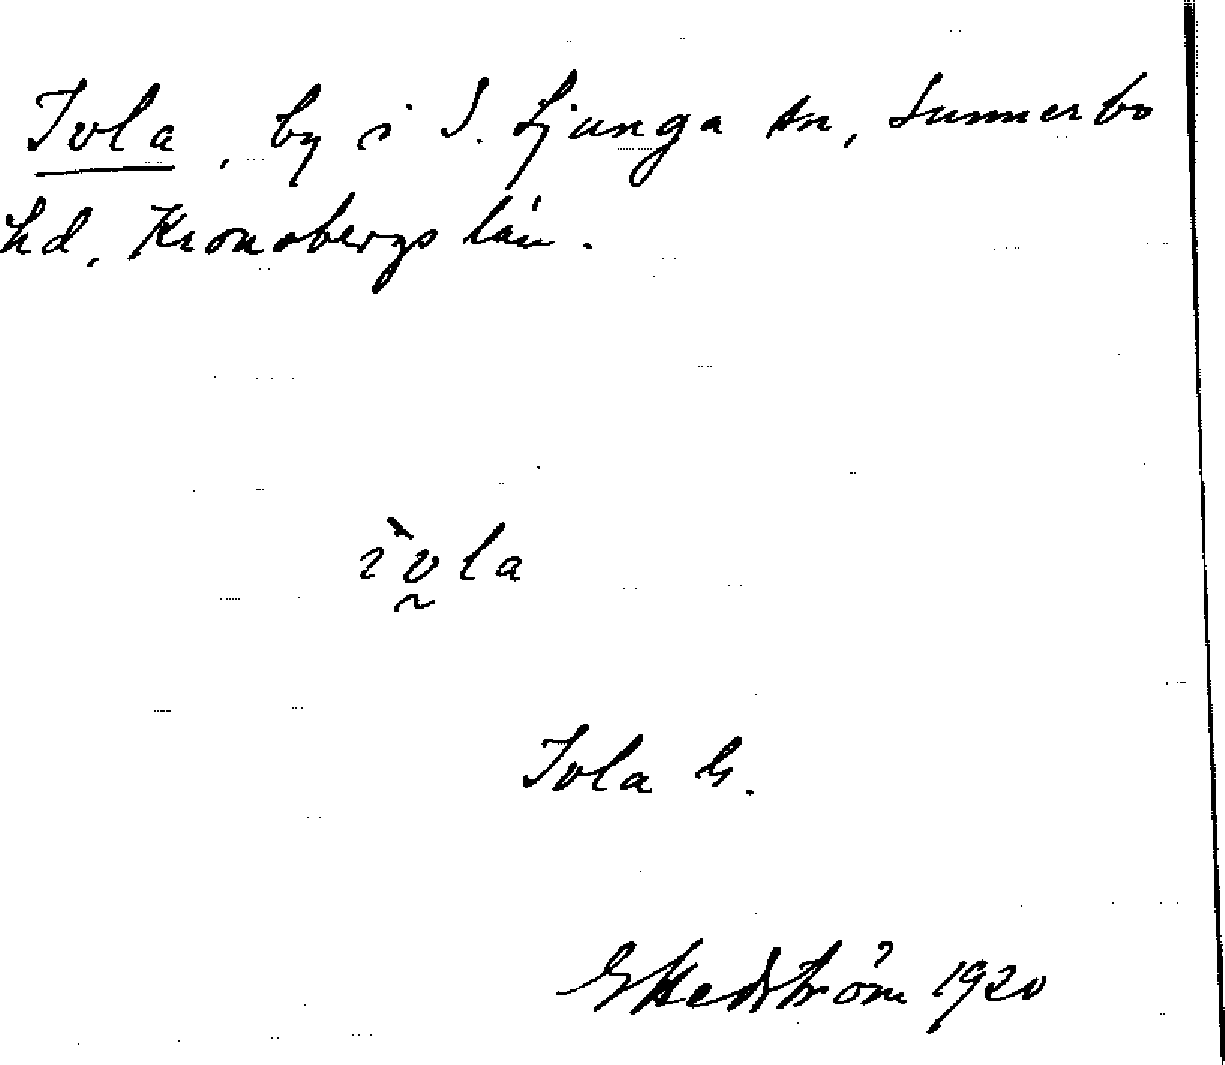 Ivla, by i S. Ljunga sn, Sunnerbo
hd, Kronobergs län.
ìv̰la
Ivla G.
G Hedström 1920